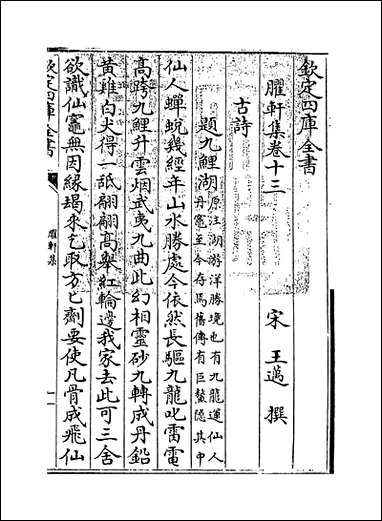 欽定四庫全書
臞軒集卷十三
宋 王邁 撰
古詩
題九鯉湖
原注湖游洋勝境也有九龍運仙人
丹竈至今存焉舊傳有巨鰲隱其中
仙人蟬蛻幾經年山水勝處今依然長驅九龍叱雷電
高跨九鯉升雲烟武夷九曲此幻相靈砂九轉成丹鉛
黄雞白犬得一舐翩翩髙舉紅輪邊我家去此可三舍
欲識仙竈無因緣朅來乞取方匕劑要使凡骨成飛仙
欽定四庫全書
臞軒集
一